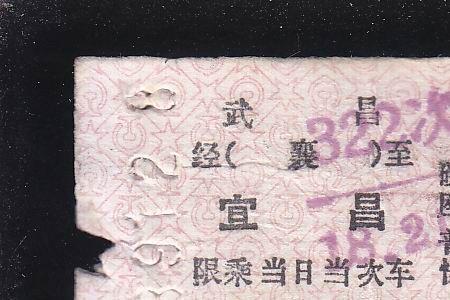 武 昌
经( 襄 )至
宜 昌
限乘当日当次车
322次
18.2